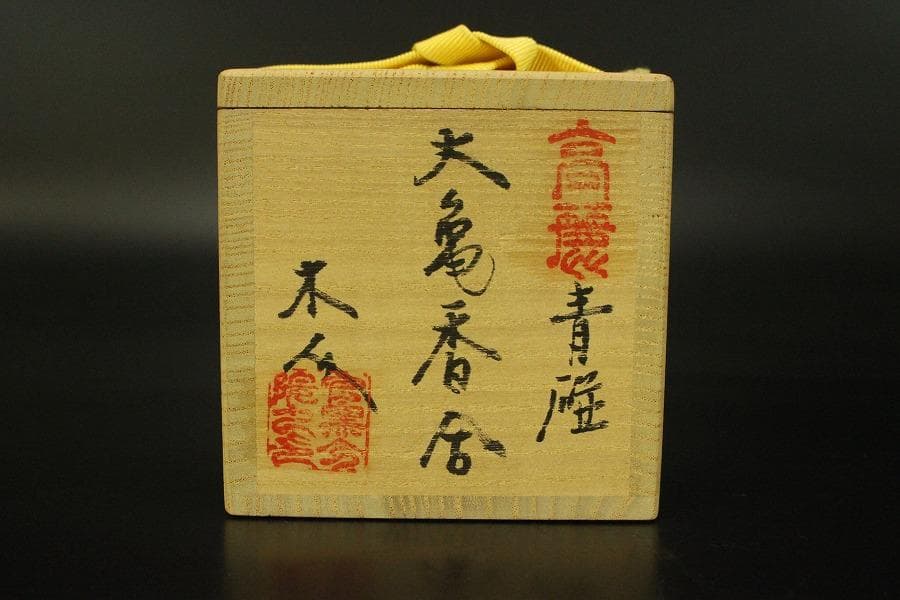 高麗青磁
大亀香合
木